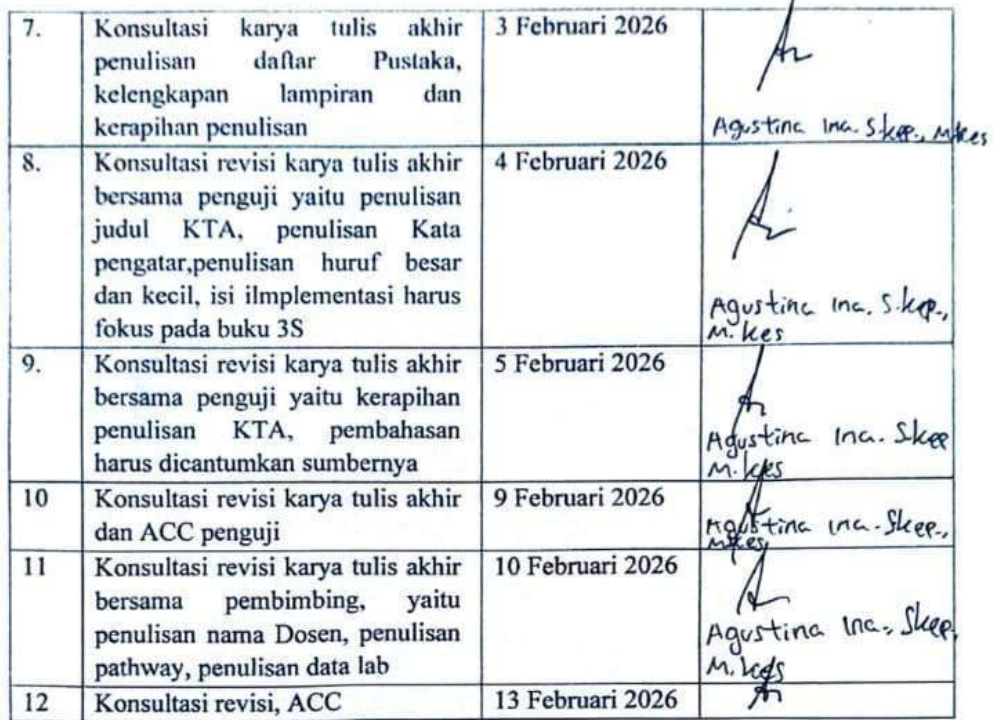 7.
Konsultasi karya tulis akhir
penulisan daftar Pustaka,
kelengkapan lampiran dan
kerapihan penulisan
3 Februari 2026
Agustina Ina. S.kep., M.kes
8.
Konsultasi revisi karya tulis akhir
bersama penguji yaitu penulisan
judul KTA, penulisan Kata
pengatar,penulisan huruf besar
dan kecil, isi ilmplementasi harus
fokus pada buku 3S
4 Februari 2026
Agustina Ina. S.kep.,
M.kes
9.
Konsultasi revisi karya tulis akhir
bersama penguji yaitu kerapihan
penulisan KTA, pembahasan
harus dicantumkan sumbernya
5 Februari 2026
Agustina Ina. S.kep
M.kes
10
Konsultasi revisi karya tulis akhir
dan ACC penguji
9 Februari 2026
Agustina Ina. Skep.,
M.kes
11
Konsultasi revisi karya tulis akhir
bersama pembimbing, yaitu
penulisan nama Dosen, penulisan
pathway, penulisan data lab
10 Februari 2026
Agustina Ina., Skep,
M.kes
12
Konsultasi revisi, ACC
13 Februari 2026